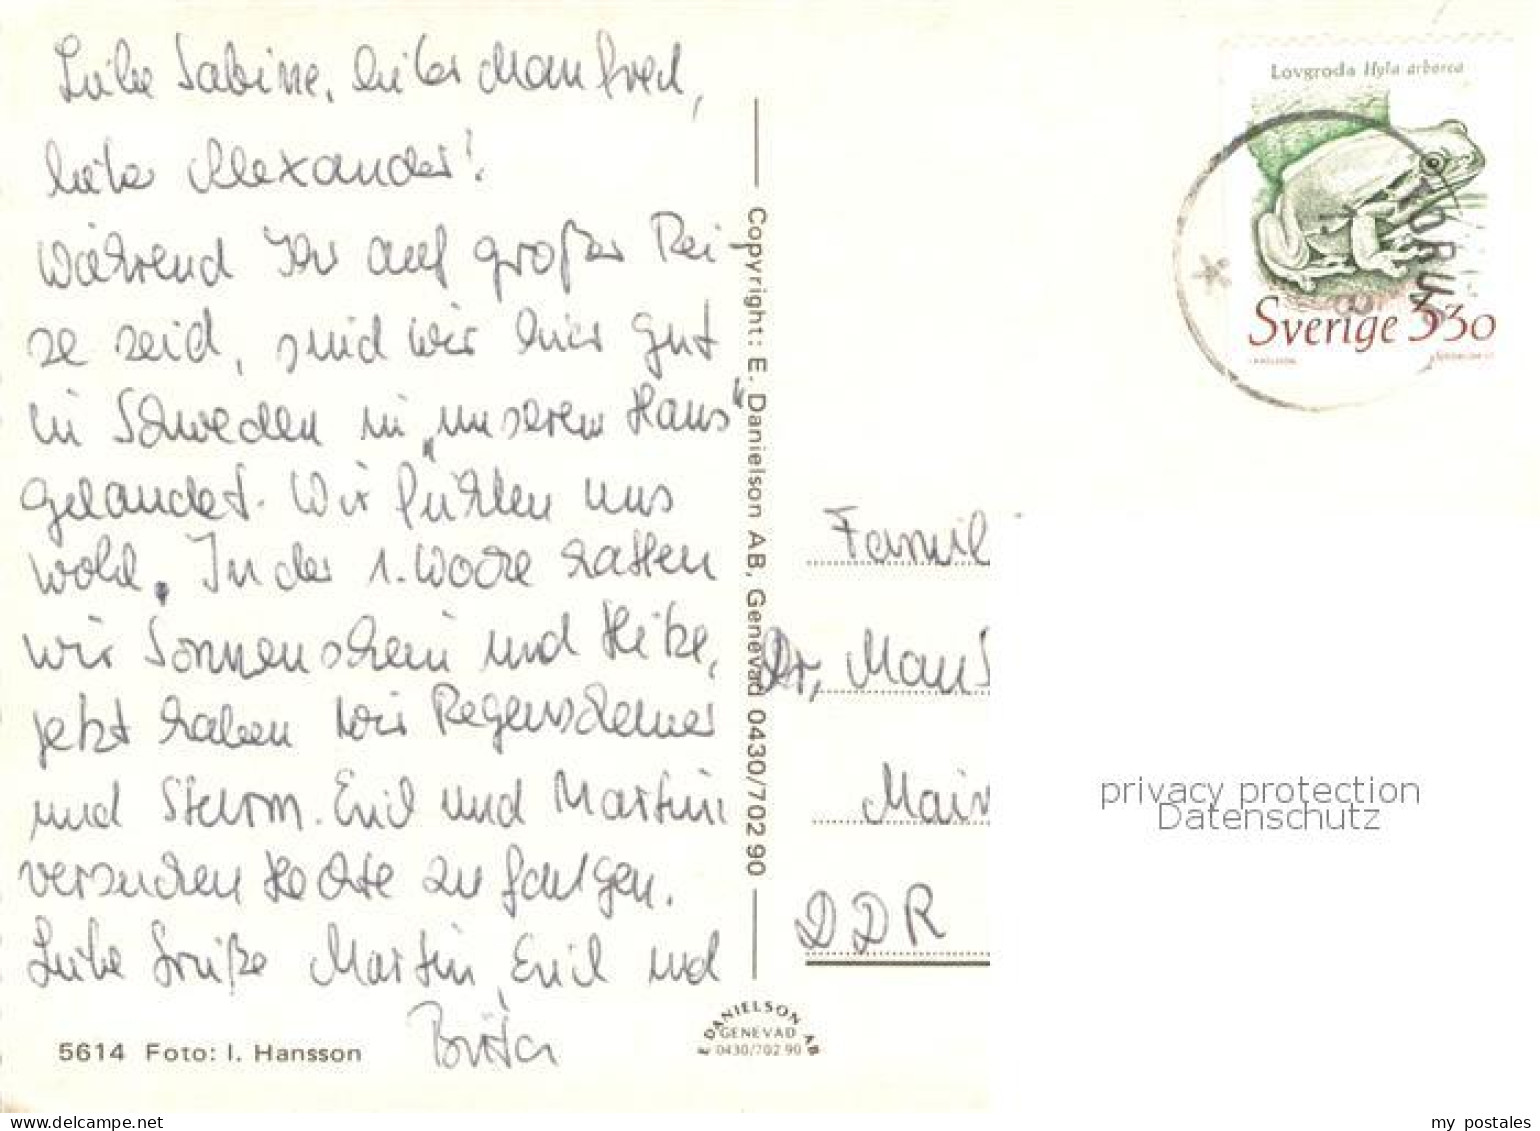 Liebe Sabine, lieber Manfred,
lieber Alexander!
Während Ihr auf großer Rei
se seid, sind wir hier gut
in Schweden in „unserem Haus“
gelandet. Wir fühlen uns
wohl. In der 1. Woche hatten
wir Sonnenschein und Hitze,
jetzt haben wir Regenschauer
und Sturm. Emil und Martin
versuchen Hechte zu fangen.
Liebe Grüße Martin, Emil und
5614 Foto: I. Hansson
Copyright: E. Danielson AB, Genevad 0430/702 90
E DANIELSON AB
GENEVAD
0430/702 90
Lovgroda Hyla arborea
Sverige 3 30
Famil
Dr, Man
Main
DDR
privacy protection
Datenschutz
www.delcampe.net
my_postales